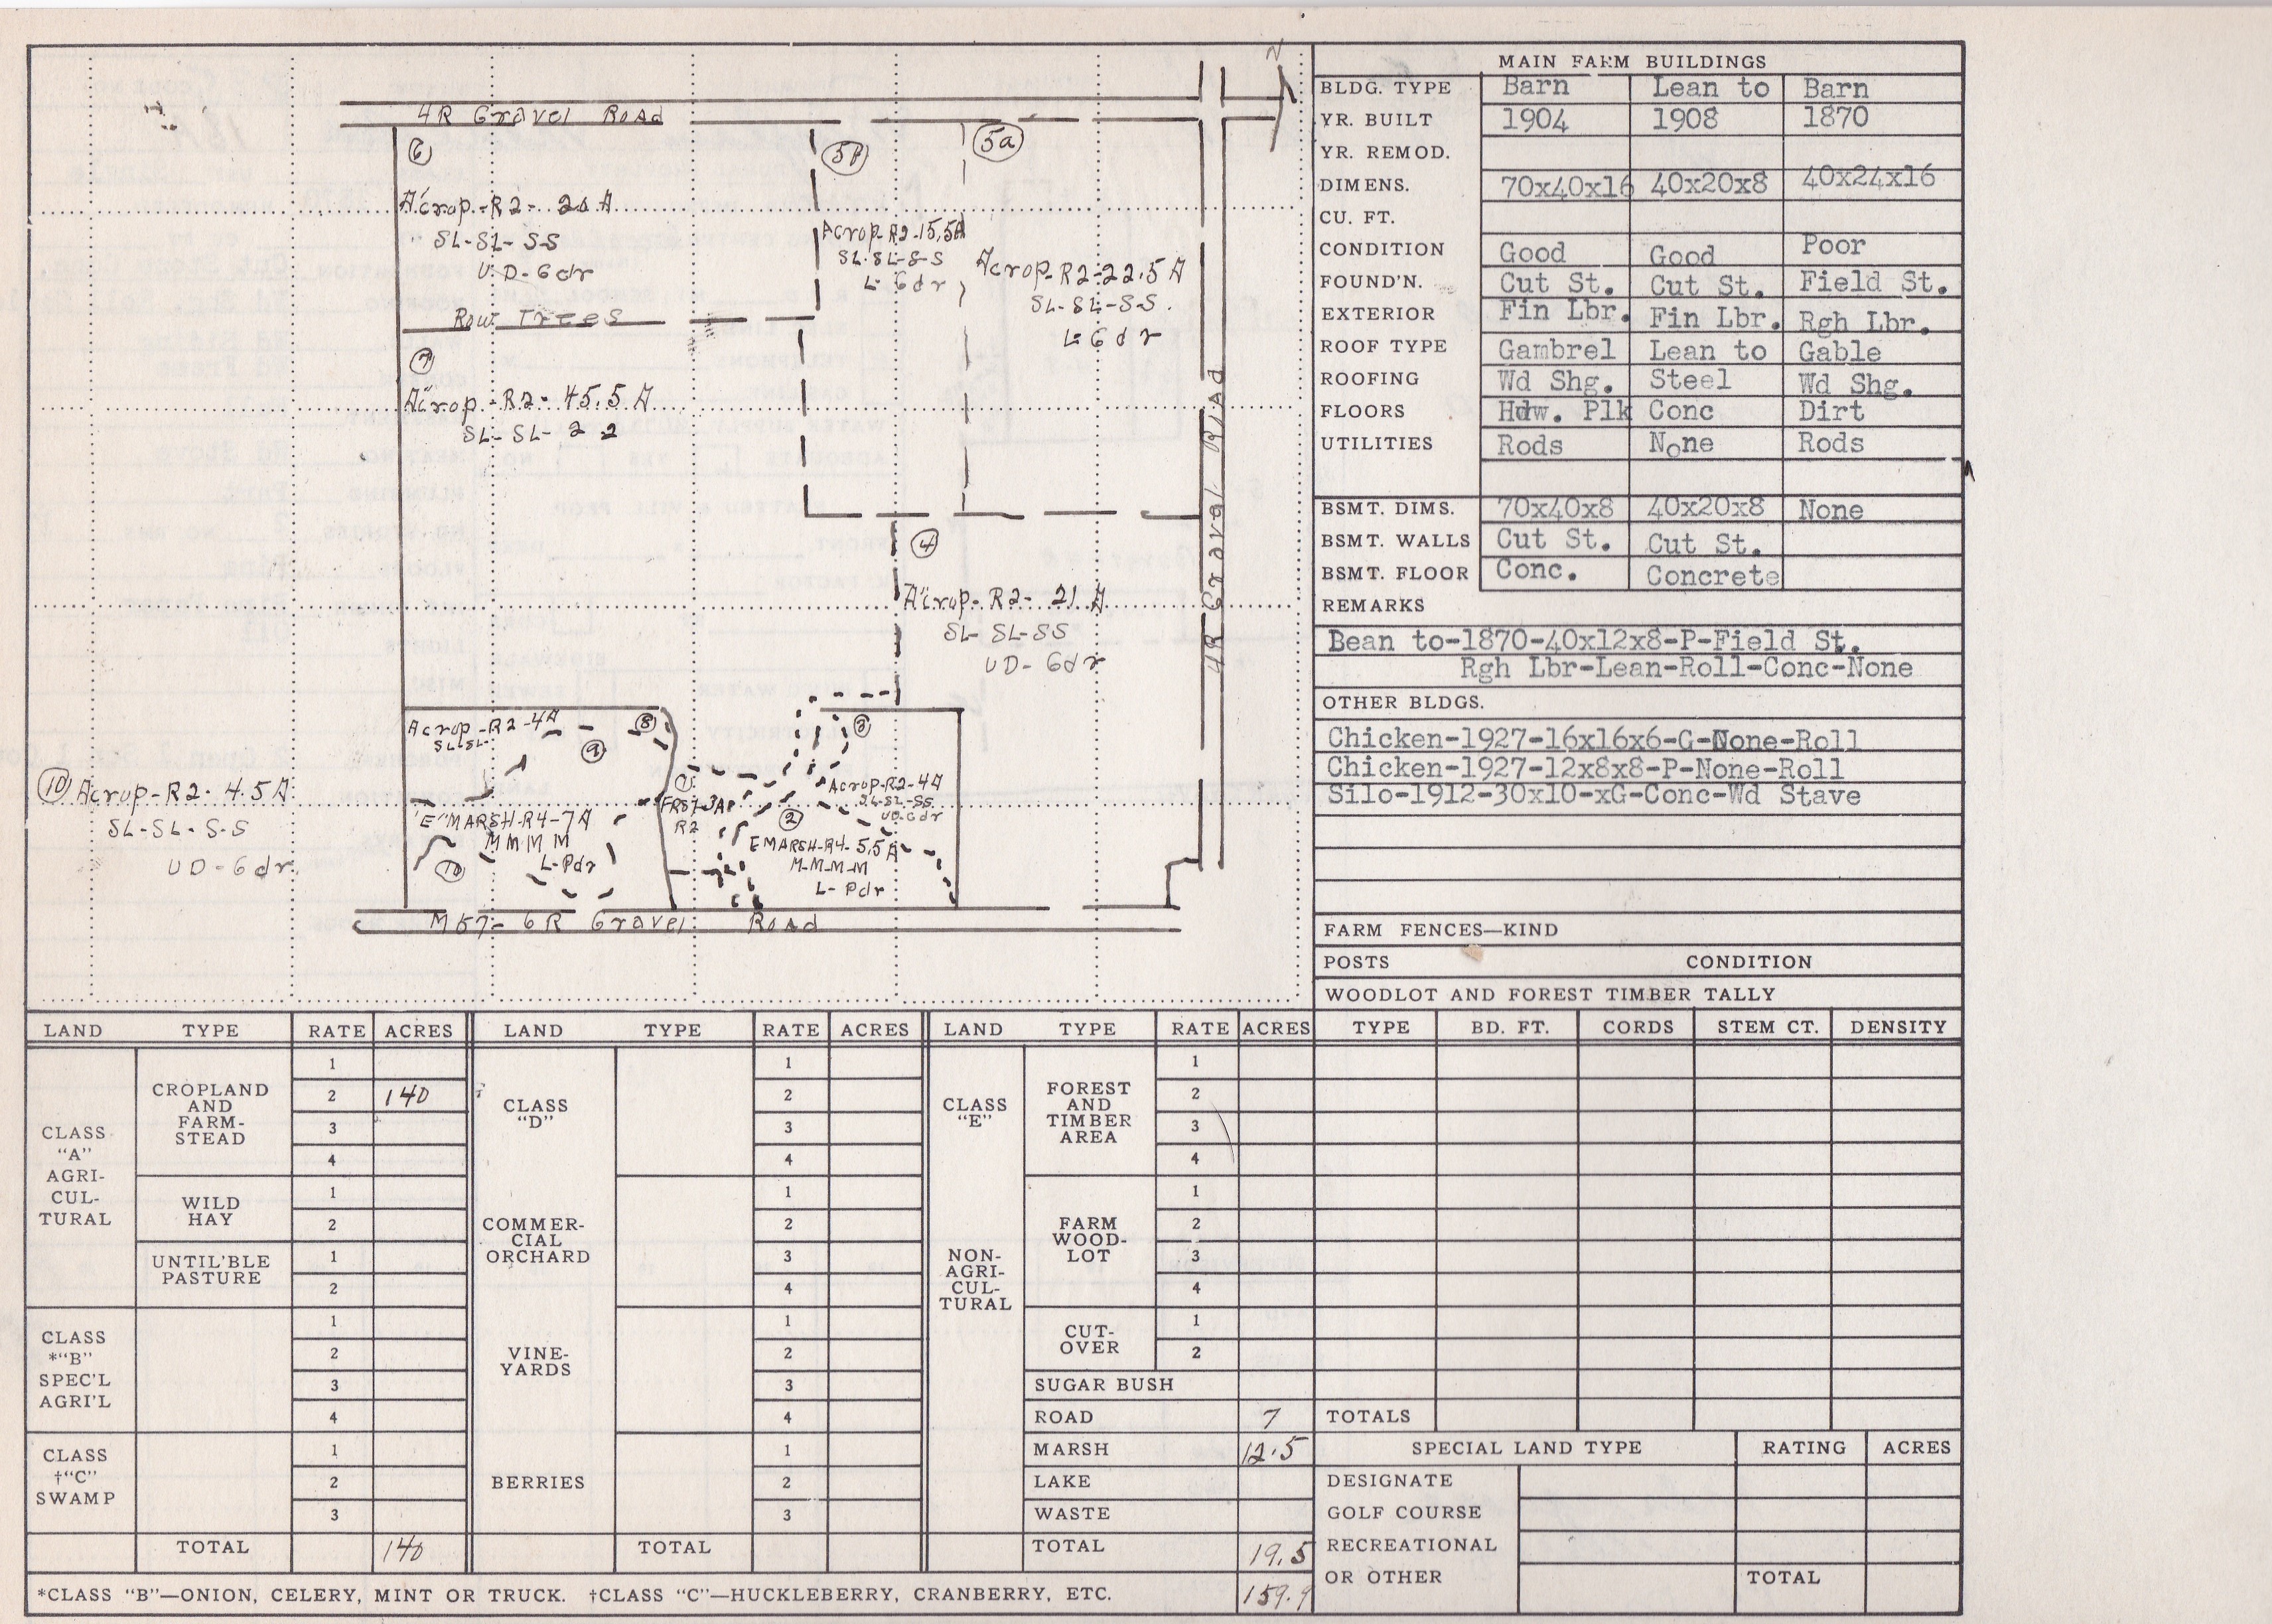 N
4R Gravel Road
6
5B
5a
A crop-R2- 20 A
SL-SL-SS
UD-6dr
Acrop-R2-15.5A
SL-SL-S-S
L-6dr
Acrop-R2-22.5 A
SL-SL-SS.
L-6dr
Row Trees
7
A crop-R2-45.5 A
SL-SL- 2 2
4R Gravel Road
4
A crop-R2- 21 A
SL-SL-SS
UD-6dr
Acrop-R2-4A
SL-SL-
8
9
3
10 Acrop-R2- 4.5A
SL-SL-S-S
UD-6dr.
"E" MARSH-R4-7A
M M M M
L-Pdr
10
1
FRST-3A
R2
Acrop-R2-4A
SL-SL-SS
UD-6dr
2
E MARSH-R4-5.5A
M-M-M-M
L-Pdr
M57- 6R Gravel Road
MAIN FARM BUILDINGS
BLDG. TYPE Barn Lean to Barn
YR. BUILT 1904 1908 1870
YR. REMOD.
DIMENS. 70x40x16 40x20x8 40x24x16
CU. FT.
CONDITION Good Good Poor
FOUND'N. Cut St. Cut St. Field St.
EXTERIOR Fin Lbr. Fin Lbr. Rgh Lbr.
ROOF TYPE Gambrel Lean to Gable
ROOFING Wd Shg. Steel Wd Shg.
FLOORS Hdw. Plk Conc Dirt
UTILITIES Rods None Rods
BSMT. DIMS. 70x40x8 40x20x8 None
BSMT. WALLS Cut St. Cut St.
BSMT. FLOOR Conc. Concrete
REMARKS
Bean to-1870-40x12x8-P-Field St.
Rgh Lbr-Lean-Roll-Conc-None
OTHER BLDGS.
Chicken-1927-16x16x6-G-None-Roll
Chicken-1927-12x8x8-P-None-Roll
Silo-1912-30x10-xG-Conc-Wd Stave
FARM FENCES—KIND
POSTS CONDITION
WOODLOT AND FOREST TIMBER TALLY
TYPE BD. FT. CORDS STEM CT. DENSITY
TOTALS
SPECIAL LAND TYPE RATING ACRES
DESIGNATE
GOLF COURSE
RECREATIONAL
OR OTHER TOTAL
LAND TYPE RATE ACRES
CLASS
"A"
AGRI-
CUL-
TURAL
CROPLAND
AND
FARM-
STEAD
1
2 140
3
4
WILD
HAY
1
2
UNTIL'BLE
PASTURE
1
2
CLASS
*"B"
SPEC'L
AGRI'L
1
2
3
4
CLASS
†"C"
SWAMP
1
2
3
TOTAL 140
LAND TYPE RATE ACRES
CLASS
"D"
1
2
3
4
COMMER-
CIAL
ORCHARD
1
2
3
4
VINE-
YARDS
1
2
3
4
BERRIES
1
2
3
TOTAL
LAND TYPE RATE ACRES
CLASS
"E"
NON-
AGRI-
CUL-
TURAL
FOREST
AND
TIMBER
AREA
1
2
3
4
FARM
WOOD-
LOT
1
2
3
4
CUT-
OVER
1
2
SUGAR BUSH
ROAD 7
MARSH 12.5
LAKE
WASTE
TOTAL 19.5
159.9
*CLASS "B"—ONION, CELERY, MINT OR TRUCK. †CLASS "C"—HUCKLEBERRY, CRANBERRY, ETC.